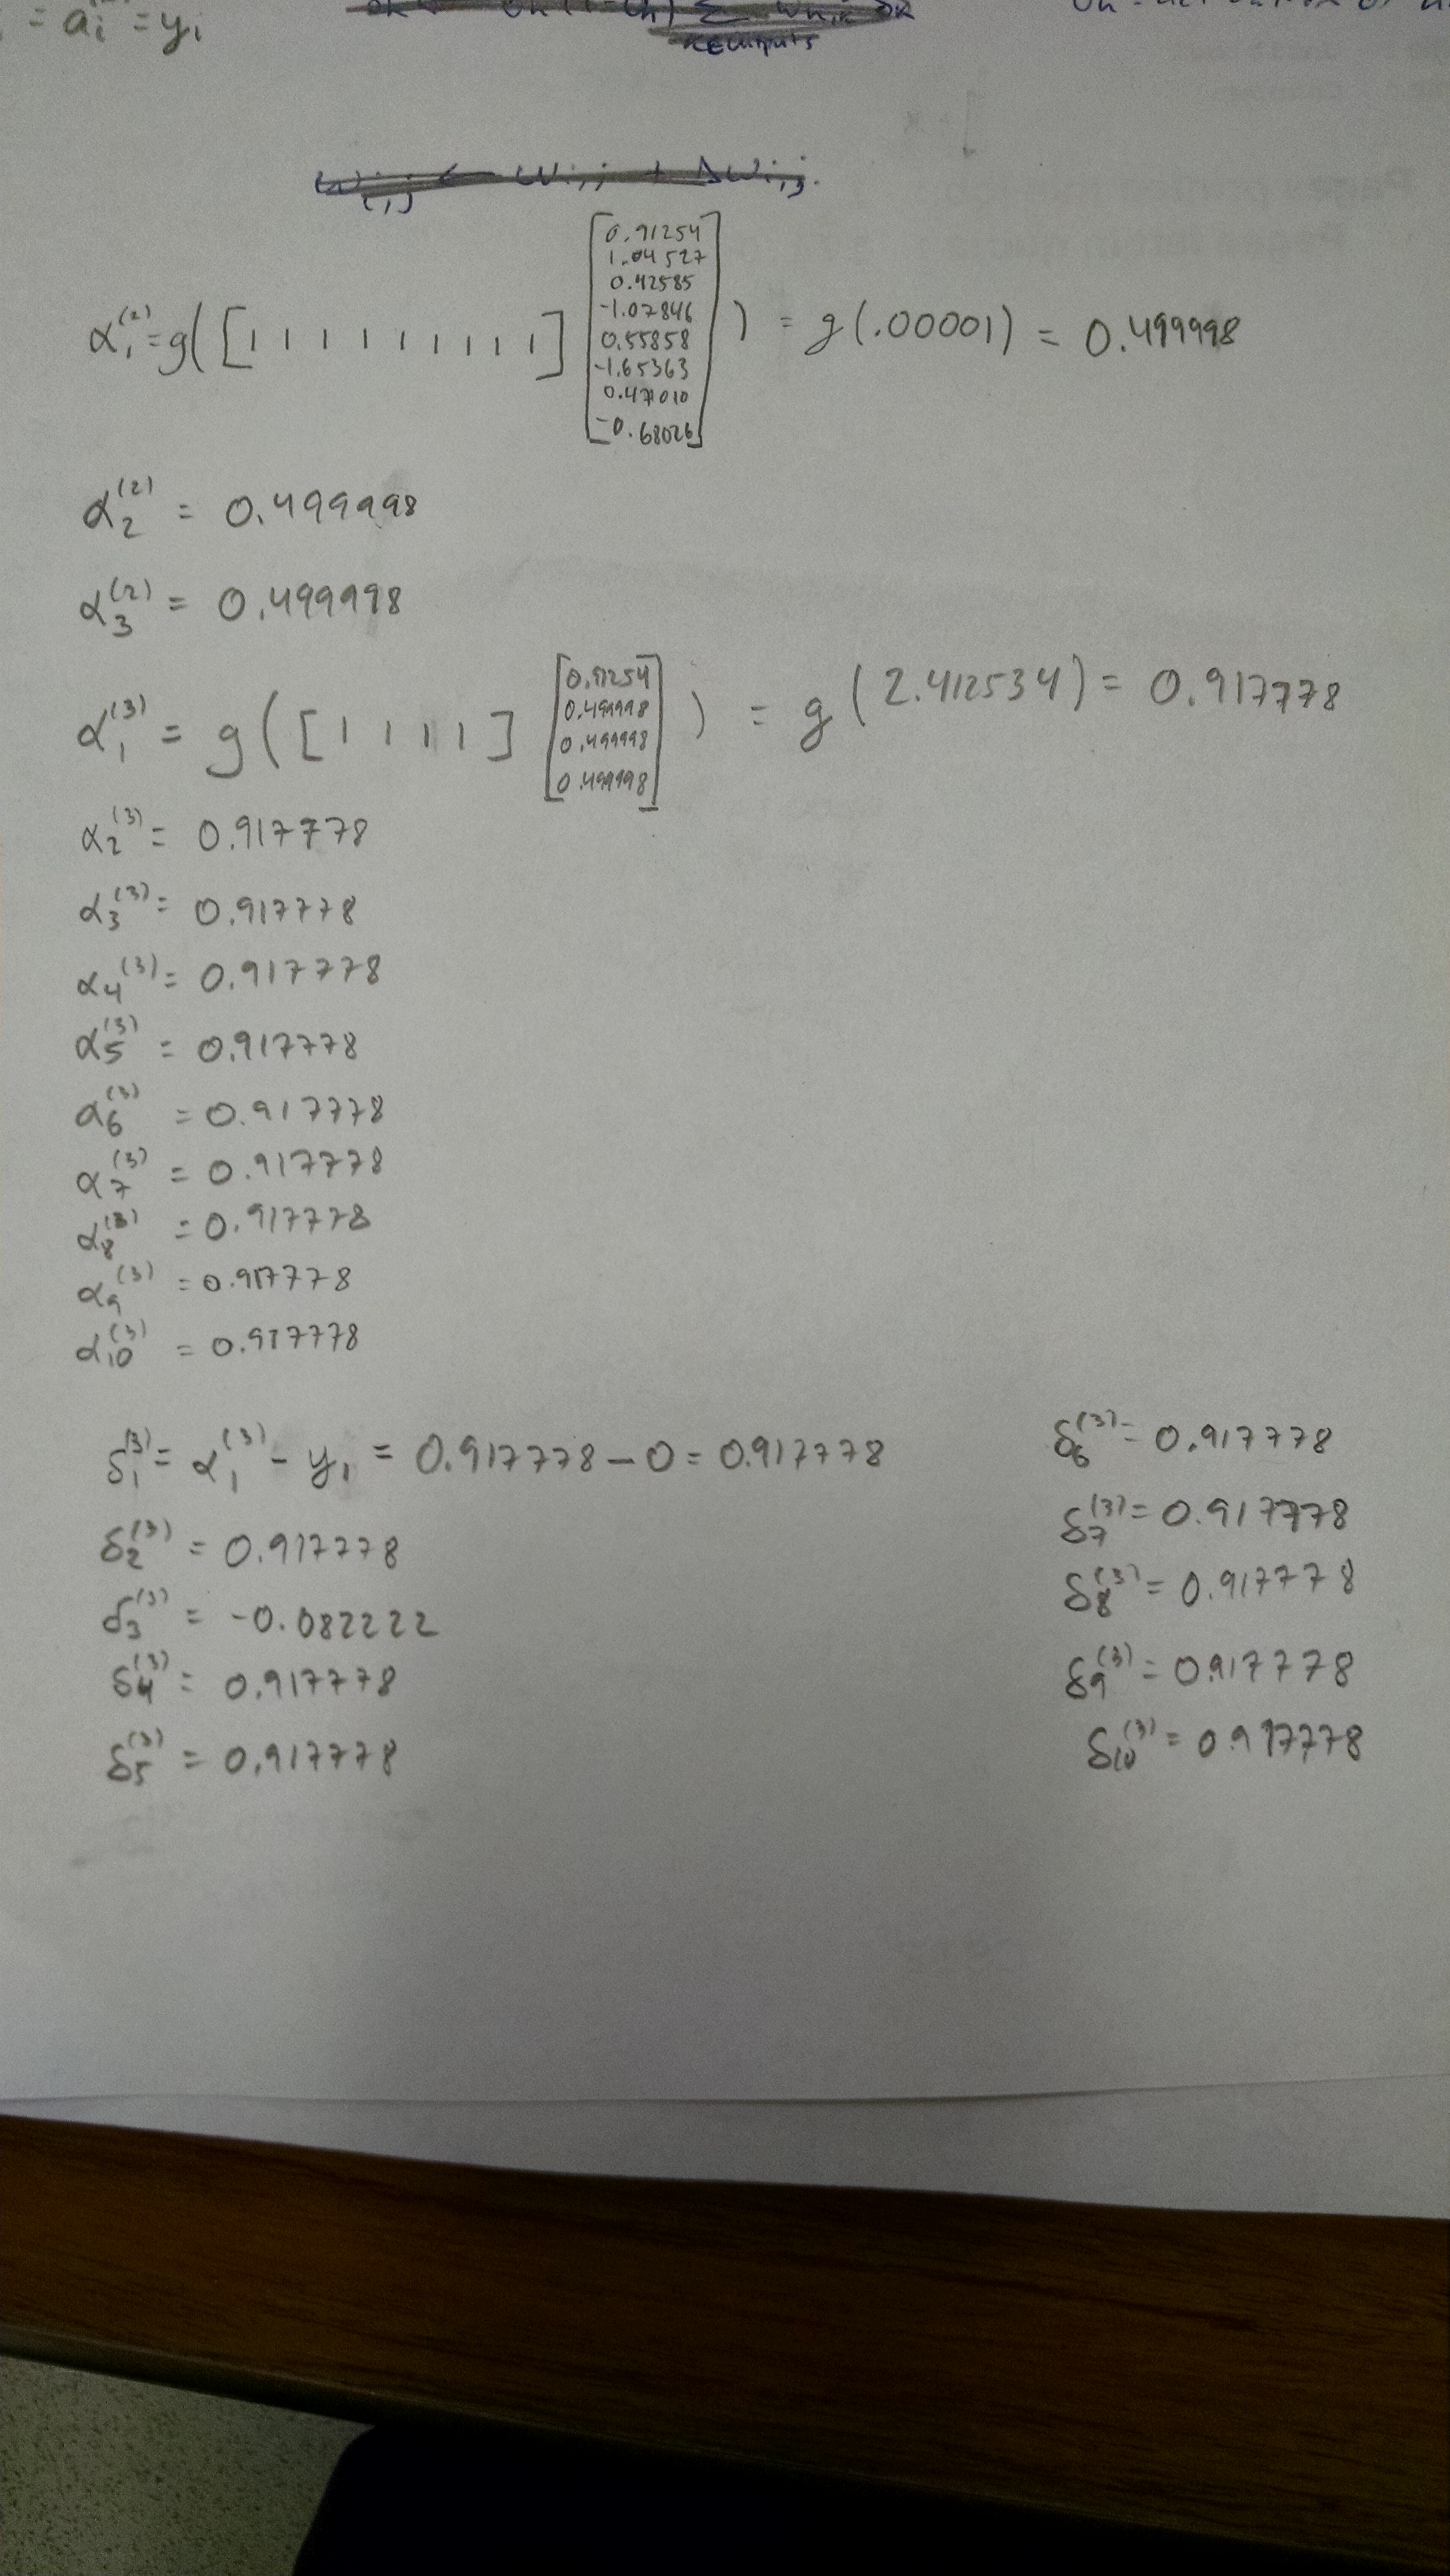 = aᵢ = yᵢ
k∈outputs
wᵢ,ⱼ ← wᵢ,ⱼ + Δwᵢ,ⱼ.
α₁⁽²⁾ = g([1 1 1 1 1 1 1 1 1] [0.91254
1.04527
0.42585
-1.07846
0.55858
-1.65363
0.47010
-0.68026]) = g(.00001) = 0.499998
α₂⁽²⁾ = 0.499998
α₃⁽²⁾ = 0.499998
α₁⁽³⁾ = g([1 1 1 1] [0.91254
0.499998
0.499998
0.499998]) = g(2.412534) = 0.917778
α₂⁽³⁾ = 0.917778
α₃⁽³⁾ = 0.917778
α₄⁽³⁾ = 0.917778
α₅⁽³⁾ = 0.917778
α₆⁽³⁾ = 0.917778
α₇⁽³⁾ = 0.917778
α₈⁽³⁾ = 0.917778
α₉⁽³⁾ = 0.917778
α₁₀⁽³⁾ = 0.917778
δ₁⁽³⁾ = α₁⁽³⁾ - y₁ = 0.917778 - 0 = 0.917778
δ₂⁽³⁾ = 0.917778
δ₃⁽³⁾ = -0.082222
δ₄⁽³⁾ = 0.917778
δ₅⁽³⁾ = 0.917778
δ₆⁽³⁾ = 0.917778
δ₇⁽³⁾ = 0.917778
δ₈⁽³⁾ = 0.917778
δ₉⁽³⁾ = 0.917778
δ₁₀⁽³⁾ = 0.917778